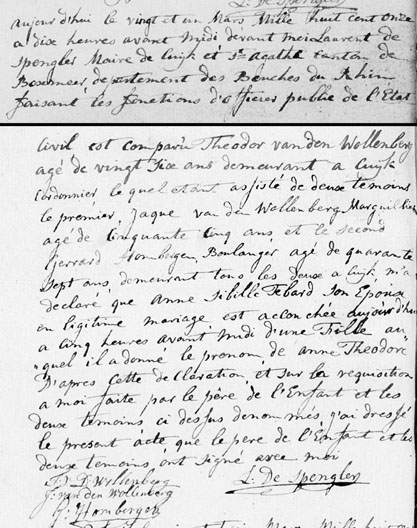 L. De Spengler
aujourd'hui le vingt et un Mars Mille huit cent onze
a dix heures avant midi devant moi Laurent de
Spengler Maire de Cuijk et Ste Agathe Canton de
Boxmeer, departement des Bouches du Rhin
faisant les fonctions d'officier public de l'Etat
Civil est comparu Theodor van den Wollenberg
agé de vingt Six ans demeurant a Cuijk
Cordonnier le quel etant assisté de deux temoins
le premier, Jaque van den Wollenberg
agé de Cinquante Cinq ans et le Second
Gerrard Hombergen, Boulanger agé de quarante
Sept ans, demeurant tous les deux a Cuijk m'a
declaré que Anne Sibille Tebard Son Epouse
en legitime mariage est acconchée aujourd'hui
a Cinq heures avant midi d'une Fiolle au
quel il a donné le prenom de Anne Theodore
D'apres Cette declaration et sur la requisition
a moi faite par le père de l'Enfant et les
deux temoins, ci dessus denommés, j'ai dressé
le present acte que le pere de l'Enfant et les
deux temoins, ont signé avec moi
Wollenberg L. De Spengler
J. van den Wollenberg
G. Hombergen